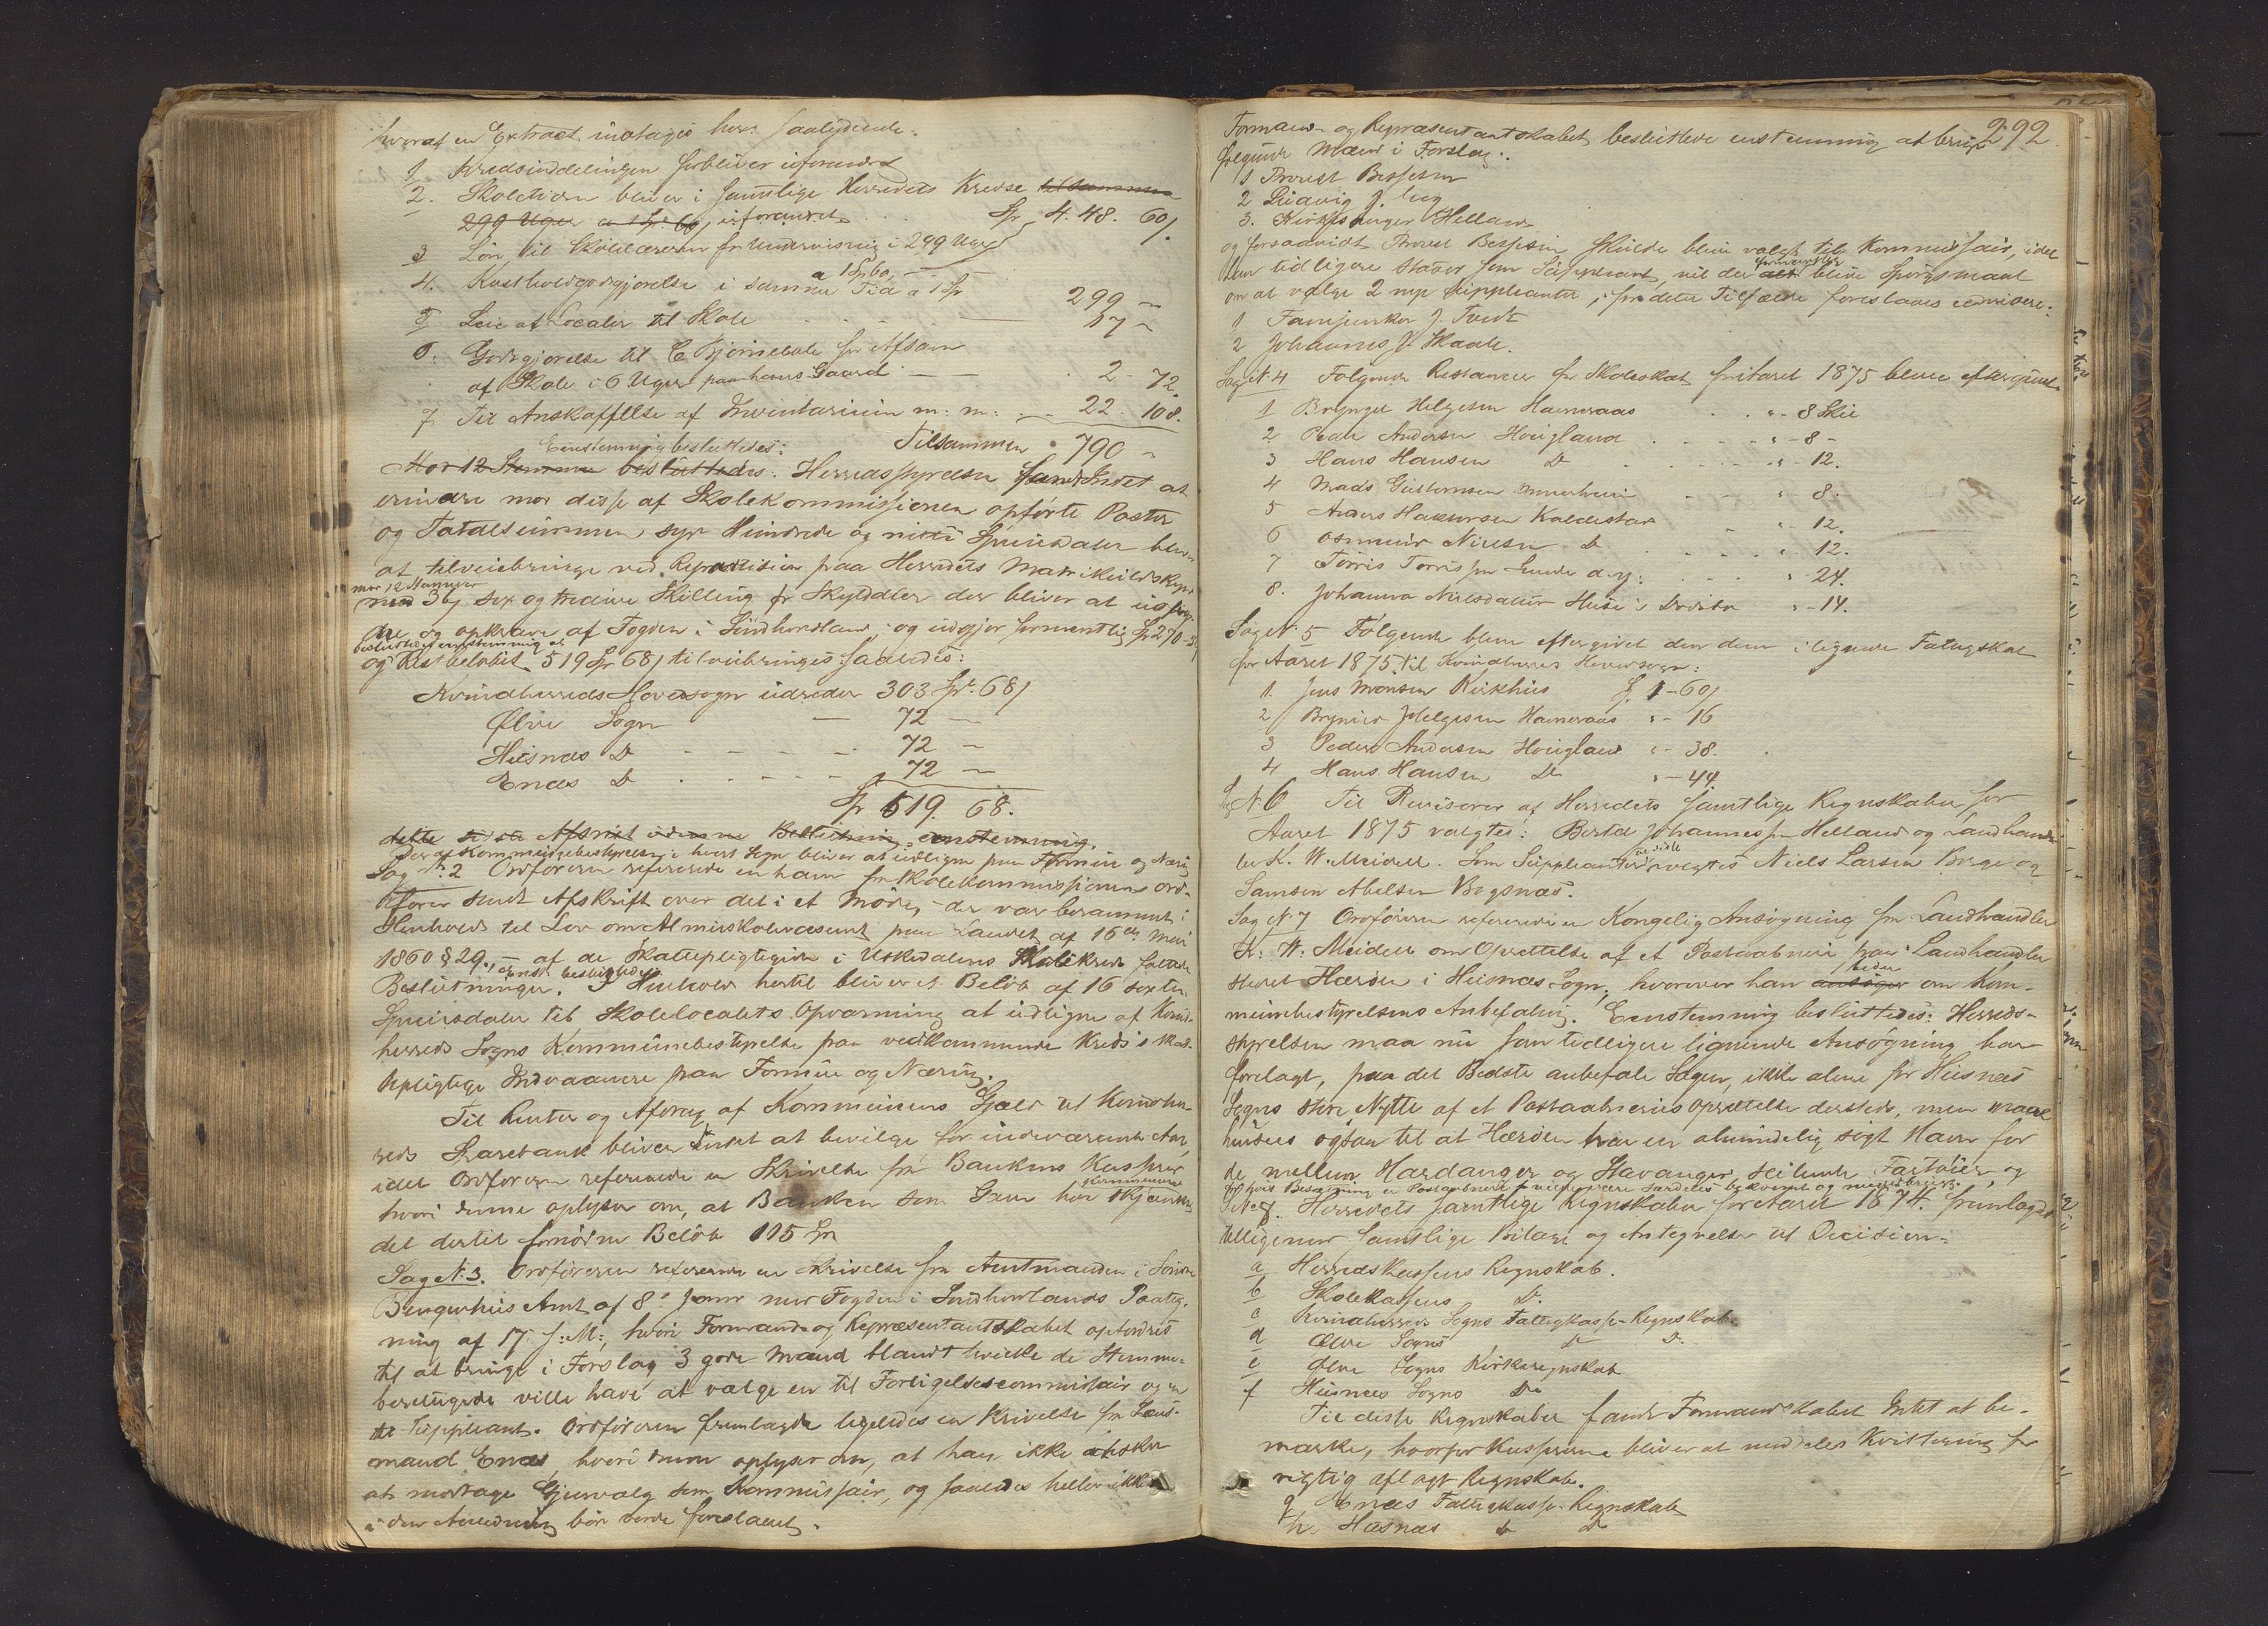 hvoraf en Extract indtages her: saalydende:
1 Kredsinddelingen forbliver uforandret
2. Skoletiden bliver i samtlige Herredets Kredse tilsammen
299 Uger a 1 Sp 60, uforandret
3 Løn til Skolelærerne for Undervisning i 299 Uger Sp 448. 60
4. Kostholdgodtgjørelse i samme Tid a 1 Sp 299 "
5 Leie af Localer til Skole 17 "
6. Godtgjørelse til C. Bjørnebole for Afsavn
af Skole i 6 Uger paa hans Gaard 2. 72.
7 Til Anskaffelse af Inventarium m: m: 22. 108.
Tilsammen 790 "
Eenstemmig besluttedes:
Mod 12 Stemmer besluttedes: Herredsstyrelsen fandt Intet at
erindre mod disse af Skolekommissionen opførte Poster
og Totalsummen syv Hundrede og nitti Speciedaler bliver
at tilveiebringe ved Repartition paa Herredets Matrikulskyld
mod 12 Stemmer
med 36 sex og tredive Skilling pr Skylddaler der bliver at udskrive
og opkræve af Fogden i Søndhordland og udgjør formentlig Sp 270-
besluttedes enstemmig at
og Restbeløbet 519 Sp 68 tilveiebringes saaledes:
Kvindherreds Hovedsogn udreder 303 Sp. 68
Ølve Sogn — 72 —
Husnæs Do 72 —
Enæs Do 72 —
Sp 519. 68.
dette sidste Afsnit Beslutning eenstemmig.
Der af Kommunebestyrelsen i hvert Sogn bliver at udligne paa Formue og Næring
Sag No 2 Ordføreren refererede en ham fra Skolekommissionens Ord-
fører sendt Afskrift over det i et Møde, – der var berammet i
Henhold til Lov om Almueskolevæsenet paa Landet af 16de Mai
1860 § 29, – af de Skattepligtige i Uskedalens Skolekreds fattede
Beslutninger. I Henhold hertil bliver et Beløb af 16 sexten
Speciesdaler til Skolelocalets Opvarming at udligne af Kvind-
herreds Sogns Kommunebestyrelse paa vedkommende Kreds's skat-
tepligtige Indvaanere paa Formue og Næring.
Til Renter og Afdrag af Kommunens Gjæld til Kvindher-
reds Sparebank bliver Intet at bevilge for indeværende Aar,
idet Ordføreren refererede en Skrivelse fra Bankens Kasserer
hvori denne oplyser om, at Banken som Gave har skjænket Kommunen
det dertil fornødne Beløb 115 Sp
Sag No 3. Ordføreren refererede en Skrivelse fra Amtmanden i Søndre
Bergenhus Amt af 8de Januar med Fogden i Søndhordlands Paateg-
ning af 17 s: M:, hvori Formands- og Repræsentantskabet opfordres
til at bringe i Forslag 3 gode Mænd blandt hvilke de Stemme-
berettigede ville have at vælge en til Forligelsescommissair og en
til Suppleant. Ordføreren fremlagde ligeledes en Skrivelse fra Lens-
mand Enæs, hvori denne oplyser om, at han ikke ønsker
at modtage Gjenvalg som Kommissair, og saaledes heller ikke
i den Anledning bør vorde foreslaaet.
292
Formands- og Repræsentantskabet besluttede enstemmig at bringe
følgende Mænd i Forslag:
1 Provst Bessesen
2 Ludvig J. Lug
3. Kirkesanger Helland
og forsaavidt Provst Bessesen skulde blive valgt til Kommissair, idet
han tidligere staaer som Suppleant, vil der formentlig blive Spørgsmaal
om at vælge 2 nye Suppleanter; for dette Tilfælde foreslaaes endvidere:
1 Farrjunker J. Tvedt
2 Johannes J. Skaale.
Sag No 4 Følgende Restancer for Skoleskat for Aaret 1875 bleve eftergivne
1 Brynjel Helgesen Hammeraas " - 8 Skil
2 Peder Andersen Hougland " - 8 -
3 Hans Hansen Do " - 12.
4 Mads Guttormsen " - 8.
5 Anders Haktorsen Kaldestad " - 12.
6 Osmund Nielsen Do " - 12.
7 Torris Torrisen Lunde d. y: " - 24.
8. Johanna Nielsdatter Huse i " - 14.
Sag No 5 Følgende blev eftergivet den dem i lignede Fattigskat
for Aaret 1875 til Kvindherreds Hovedsogn:
1. Jens Monsen Kirkhus Sp 1 - 60
2 Brynild Helgesen Hammeraas " - 16
3 Peder Andersen Hougland " - 38.
4 Hans Hansen Do " - 44.
Sag No 6 Til Revisorer af Herredets samtlige Regnskaber for
Aaret 1875 valgtes: Bertel Johannessen Helland og Landhand-
ler K. W. Meidell. Som Suppleanter valgtes Niels Larsen Berge og
Samson Abelsen Bogsnæs.
Sag No 7 Ordføreren refererede en Kongelig Ansøgning fra Landhandler
K. W. Meidell om Oprettelse af et Postaabneri paa Landhandler-
stedet Herøen i Husnæs Sogn, hvorover han beder ansøger om Kom-
munebestyrelsens Anbefaling. Eenstemmig besluttedes: Herreds-
styrelsen maa nu som tidligere lignende Ansøgning har
forelagt, paa det Bedste anbefale Sagen, ikke alene for Husnæs
Sogns store Nytte af et Postaabneries Oprettelse dersteds, men maa
henvises ogsaa til at Herøen har en almindelig søgt Havn for
de mellem Hardanger og Stavanger seilende Fartøier, og
for hvis Besætning et Postaabneri vil være særdeles bekvemt og
Sag No 8. Herredets samtlige Regnskaber for Aaret 1874. fremlagdes
tilligemed samtlige Bilage og Antegnelser til Decision:
a Herredskassens Regnskab.
b Skolekassens Do.
c Kvindherreds Sogns Fattigkasse-Regnskab.
d Ølve Sogns Do Do.
e Ølve Sogns Kirkeregnskab
f Husnæs Sogns Do
Til disse Regnskaber fandt Formandskabet Intet at be-
mærke, hvorfor Kassererne bliver at meddeles Kvittering for
rigtig aflagt Regnskab.
g Enæs Fattigkasse-Regnskab
h. Husnæs Do Do